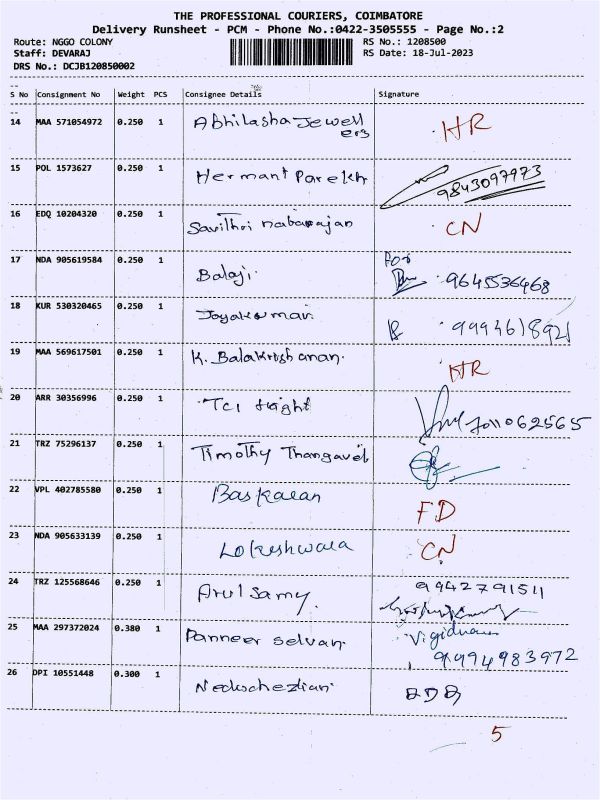 THE PROFESSIONAL COURIERS, COIMBATORE
Delivery Runsheet - PCM - Phone No.:0422-3505555 - Page No.:2
Route: NGGO COLONY RS No.: 1208500
Staff: DEVARAJ RS Date: 18-Jul-2023
DRS No.: DCJB120850002
S No Consignment No Weight PCS Consignee Details Signature
14 MAA 571054972 0.250 1 Abhilasha Jewell
ers HR
15 POL 1573627 0.250 1 Hermant Parekh 9843097973
16 EDQ 10204320 0.250 1 Savithri CN
17 NDA 905619584 0.250 1 Balaji. For
9645536468
18 KUR 530320465 0.250 1 Jayakumar. 9994618921
19 MAA 569617501 0.250 1 K. Balakrishanan. HR
20 ARR 30356996 0.250 1 Tci
21 TRZ 75296137 0.250 1 Timothy Thangavel
22 VPL 402785580 0.250 1 Baskaran FD
23 NDA 905633139 0.250 1 Lokeshwara CN
24 TRZ 125568646 0.250 1 Arul Samy. 9942791511
25 MAA 297372024 0.380 1 Panneer selvan.
9994983972
26 DPI 10551448 0.300 1 Nedunchezhian.
5